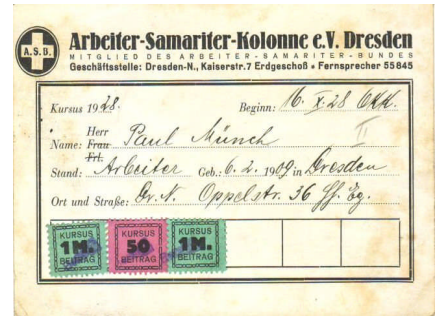 A.S.B.
Arbeiter-Samariter-Kolonne e.V. Dresden
MITGLIED DES ARBEITER-SAMARITER-BUNDES
Geschäftsstelle: Dresden-N., Kaiserstr. 7 Erdgeschoß • Fernsprecher 55845
Kursus 1928. Beginn: 16. X. 28
II
Herr
Name: Frau Paul Münch
Frl.
Stand: Arbeiter Geb.: 6. 2. 1909 in Dresden
Ort und Straße: Dr. N. Oppelstr. 36
KURSUS KURSUS KURSUS
1 M. 50 1 M.
BEITRAG BEITRAG BEITRAG